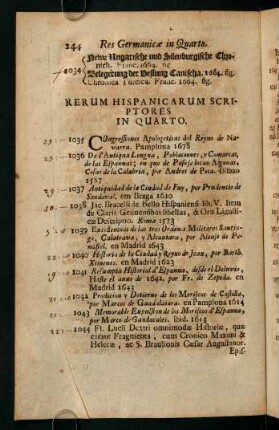 244 Res Germanicæ in Quarto.
Neue Ungarische und Sibenburgische Chro-
nick. Franc. 1664. fig.
1034 Belegerung der Vestung Canischa. 1664. fig.
Chronica Turcica. Franc. 1664. fig.
RERUM HISPANICARUM SCRI-
PTORES
IN QUARTO.
1035 COngressiones Apologeticas del Reyno de Na-
varra. Pamplona 1678
1036 De l'Antiqua Lengua, Poblaciones, y Comarcas,
de las Espannas; en que de Passo se tocan Algunas
Cosas de la Calabria, por Andres de Poca. Bilbao
1587
1037 Antiquidad de la Ciudad de Tuy, por Prudencio de
Sandoval, em Braga 1610
1038 Jac. Bracelli de Bello Hispaniensi lib. V. Item
de Claris Genuensibus libellus, & Oræ Ligusti-
cæ Descriptio. Roma 1573
1039 Excelentias de las tres Ordenes Militares Santja-
go, Calatrava, y Alcantara, por Alonso de Pe-
nafiel. en Madrid 1643
1040 Historia de la Ciudad y Reyno de Jaen, por Barth.
Ximenes. en Madrid 1623
1041 Resumpta Historial d'Espanna, desde el Deluvio,
Haste el anno de 1642. por Fr. de Zepeda. en
Madrid 1643
1042 Prodicion y Destierro de los Moriscos de Castilla,
por Marcos de Guadalaxara. en Pamplona 1614
1043 Memorable Expulsion de los Moriscos d'Espanna,
por Marco de Gaudacules. Ibid. 1613
1044 Fl. Lucii Dextri omnimodæ Historiæ, quæ
extant Fragmenta, cum Cronico Maximi &
Helecæ, ac S. Braulionis Cæsar Augustanor.
Epis-